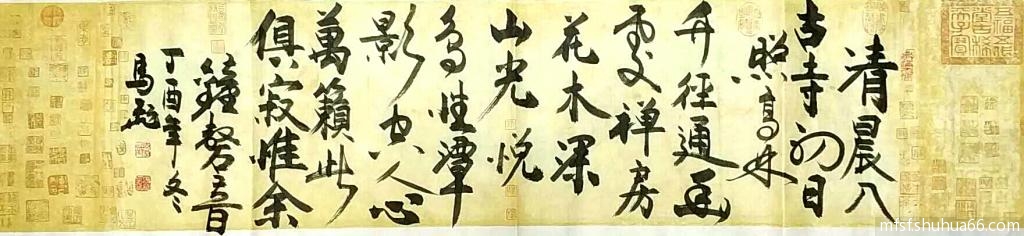 清晨入
古寺初日
照高林
竹徑通幽
處禅房
花木深
山光悦
鳥性潭
影空人心
萬籟此
俱寂惟余
鐘磬音
丁酉年冬
馬
mfsfshuhua66.com